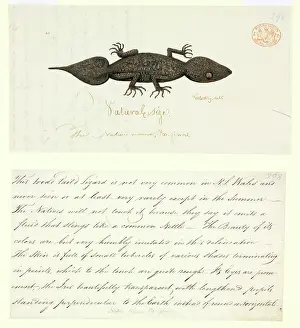 Natural size
The Native name
This broad tail'd Lizard is not very common in N. S. Wales and
never seen or at least very rarely except in the Summer —
The Natives will not touch it, because they say it emits a
fluid that stings like a common Nettle — The Beauty of its
colors are but very humbly imitated in this delineation
The Skin is full of small tubercles of various shapes terminating
in points, which to the touch are quite rough. Its eyes are promi-
nent, the Iris beautifully transparent, with lengthen'd pupils
standing perpendicular to the Earth instead of round or horizontal.